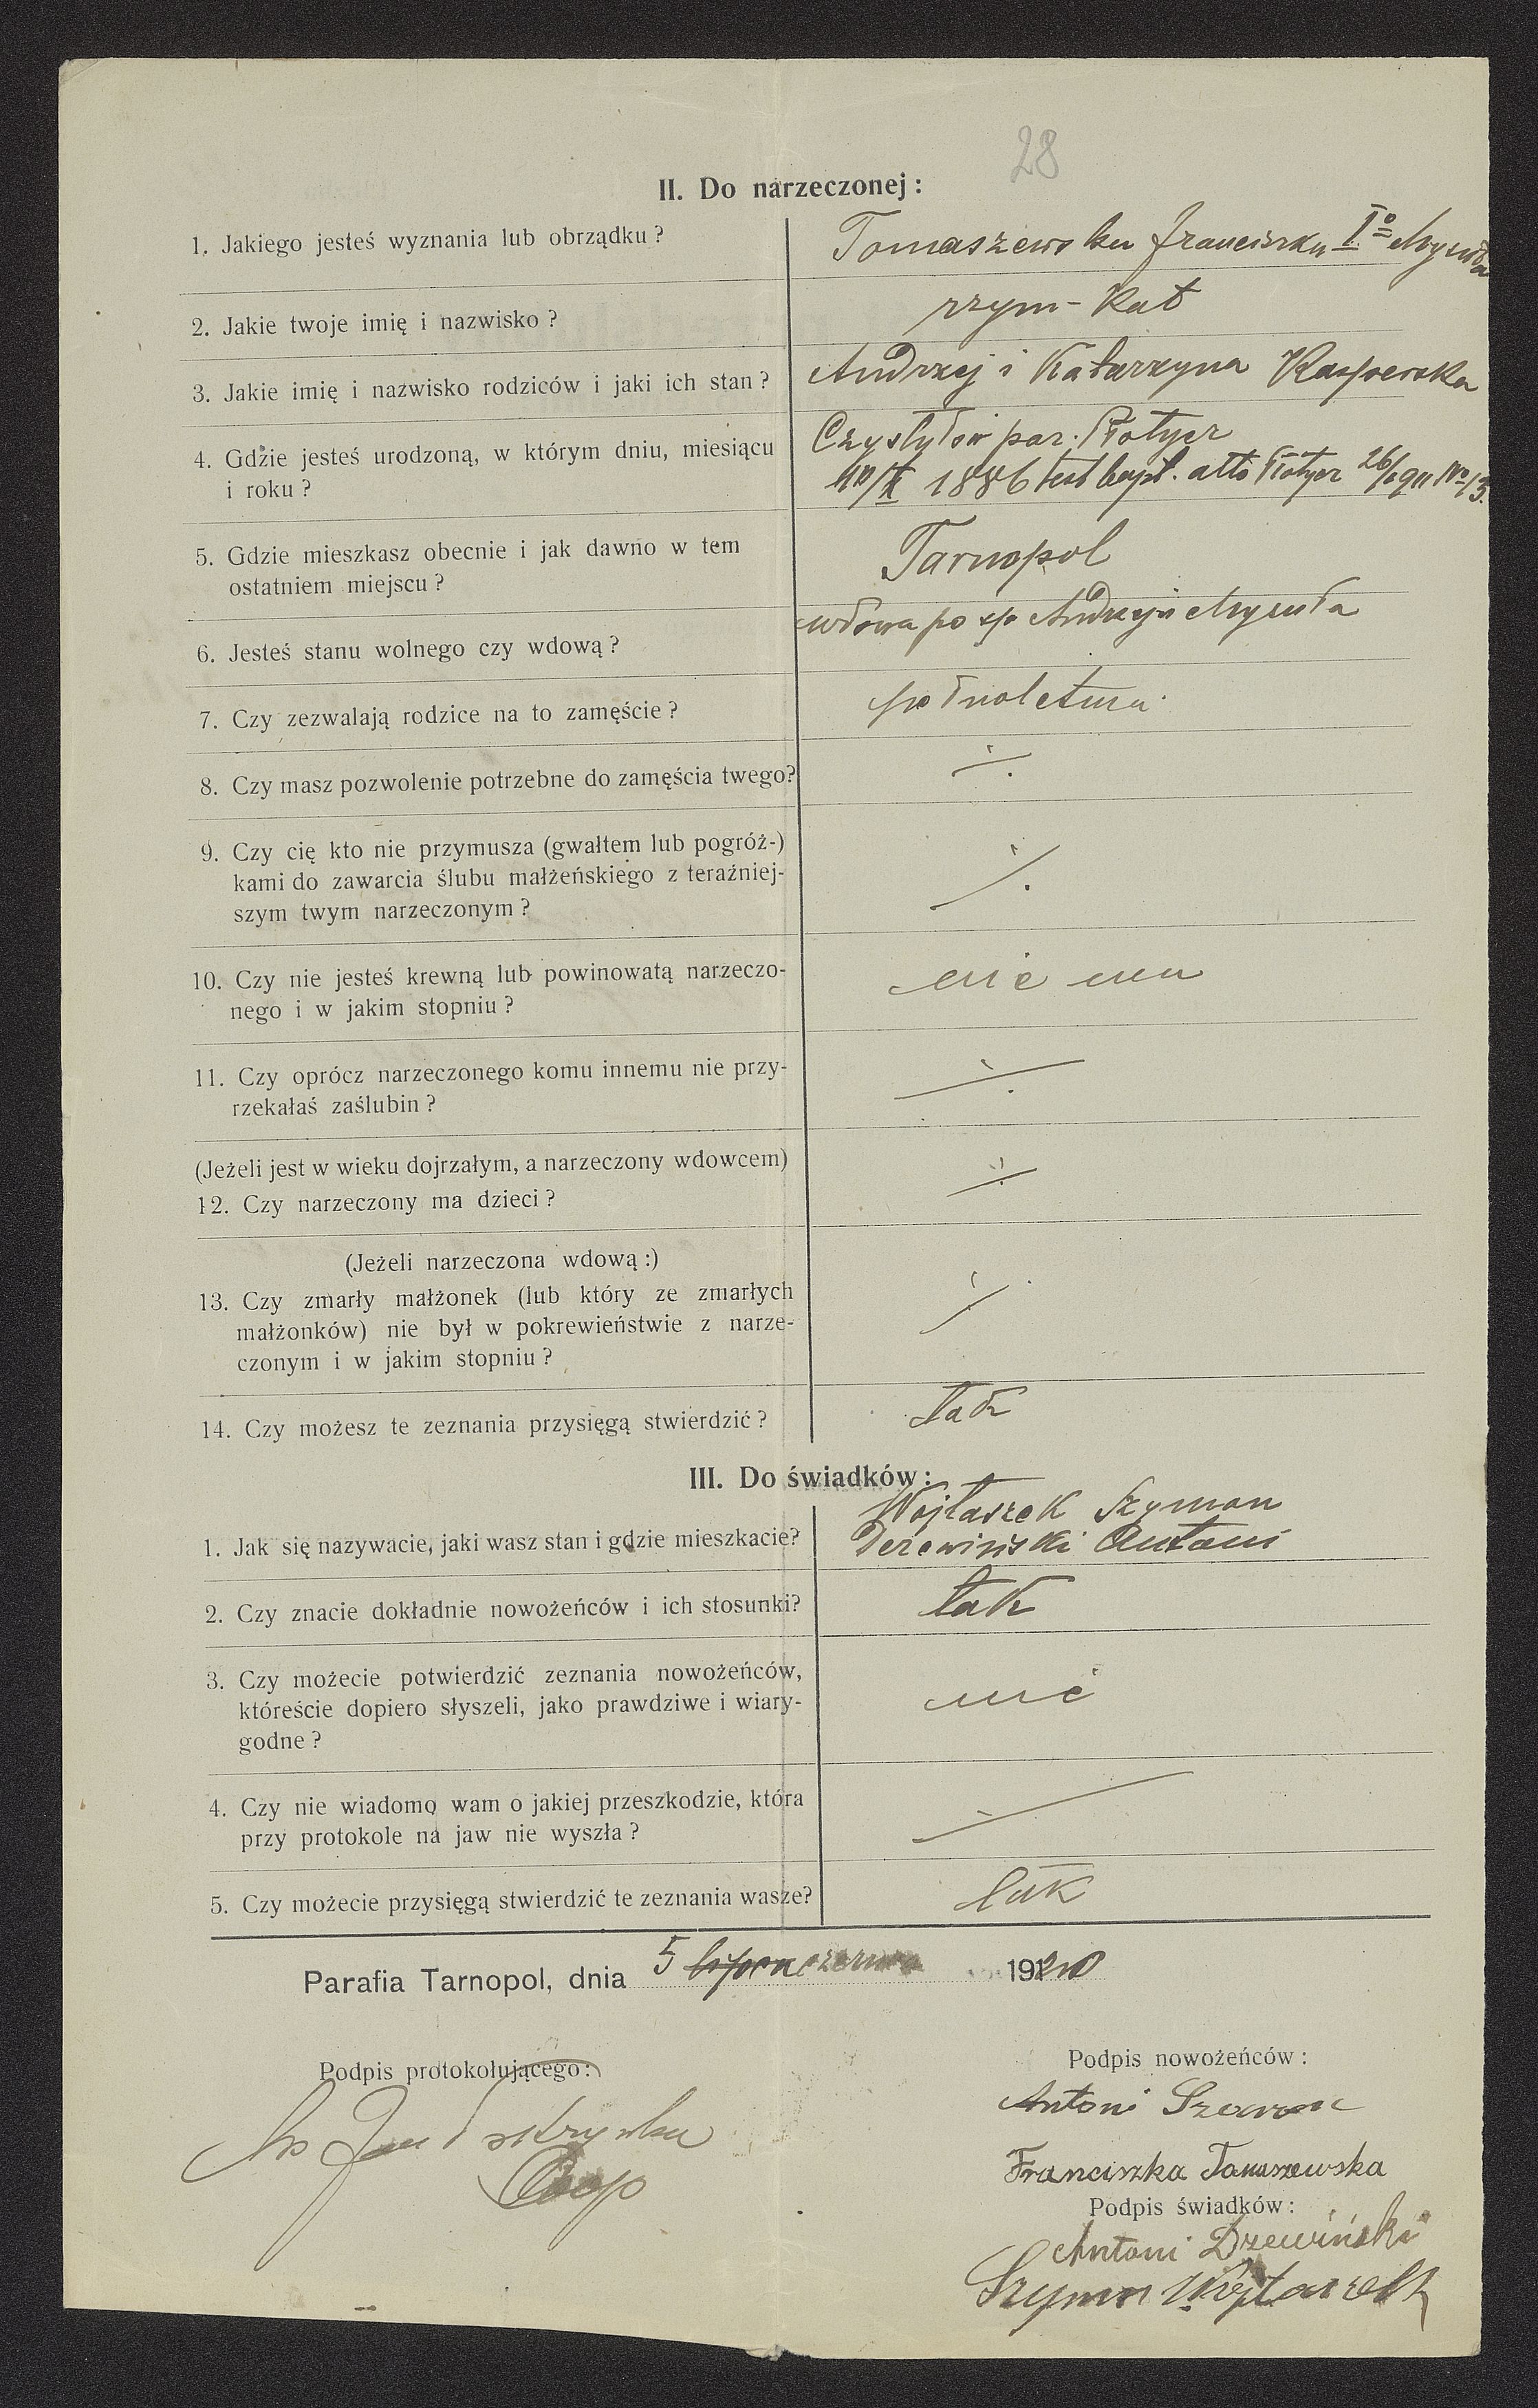 28
II. Do narzeczonej:
1. Jakiego jesteś wyznania lub obrządku?
Tomaszewska Franciszka Iº
2. Jakie twoje imię i nazwisko?
rzym-kat
3. Jakie imię i nazwisko rodziców i jaki ich stan?
Andrzej i Katarzyna Kasperska
4. Gdzie jesteś urodzoną, w którym dniu, miesiącu
i roku?
Czystyłów par. Płotycz
1886 test bapt. dtto Płotycz
5. Gdzie mieszkasz obecnie i jak dawno w tem
ostatniem miejscu?
Tarnopol
6. Jesteś stanu wolnego czy wdową?
wdowa po śp Andrzeju
7. Czy zezwalają rodzice na to zamęście?
pełnoletnia.
8. Czy masz pozwolenie potrzebne do zamęścia twego?
÷
9. Czy cię kto nie przymusza (gwałtem lub pogróż-)
kami do zawarcia ślubu małżeńskiego z teraźniej-
szym twym narzeczonym?
÷
10. Czy nie jesteś krewną lub powinowatą narzeczo-
nego i w jakim stopniu?
nie ma
11. Czy oprócz narzeczonego komu innemu nie przy-
rzekałaś zaślubin?
÷
(Jeżeli jest w wieku dojrzałym, a narzeczony wdowcem)
12. Czy narzeczony ma dzieci?
÷
(Jeżeli narzeczona wdową:)
13. Czy zmarły małżonek (lub który ze zmarłych
małżonków) nie był w pokrewieństwie z narze-
czonym i w jakim stopniu?
÷
14. Czy możesz te zeznania przysięgą stwierdzić?
tak
III. Do świadków:
1. Jak się nazywacie, jaki wasz stan i gdzie mieszkacie?
Wojtaszek Szymon
Derewiński Antoni
2. Czy znacie dokładnie nowożeńców i ich stosunki?
tak
3. Czy możecie potwierdzić zeznania nowożeńców,
któreście dopiero słyszeli, jako prawdziwe i wiary-
godne?
nie
4. Czy nie wiadomo wam o jakiej przeszkodzie, która
przy protokole na jaw nie wyszła?
5. Czy możecie przysięgą stwierdzić te zeznania wasze?
tak
Parafia Tarnopol, dnia 5 lipca czerwca 1920
Podpis protokołującego:
Podpis nowożeńców:
Ks Jan
Coop
Antoni
Franciszka Tomaszewska
Podpis świadków:
Antoni Drzewiński
Szymon Wojtaszek